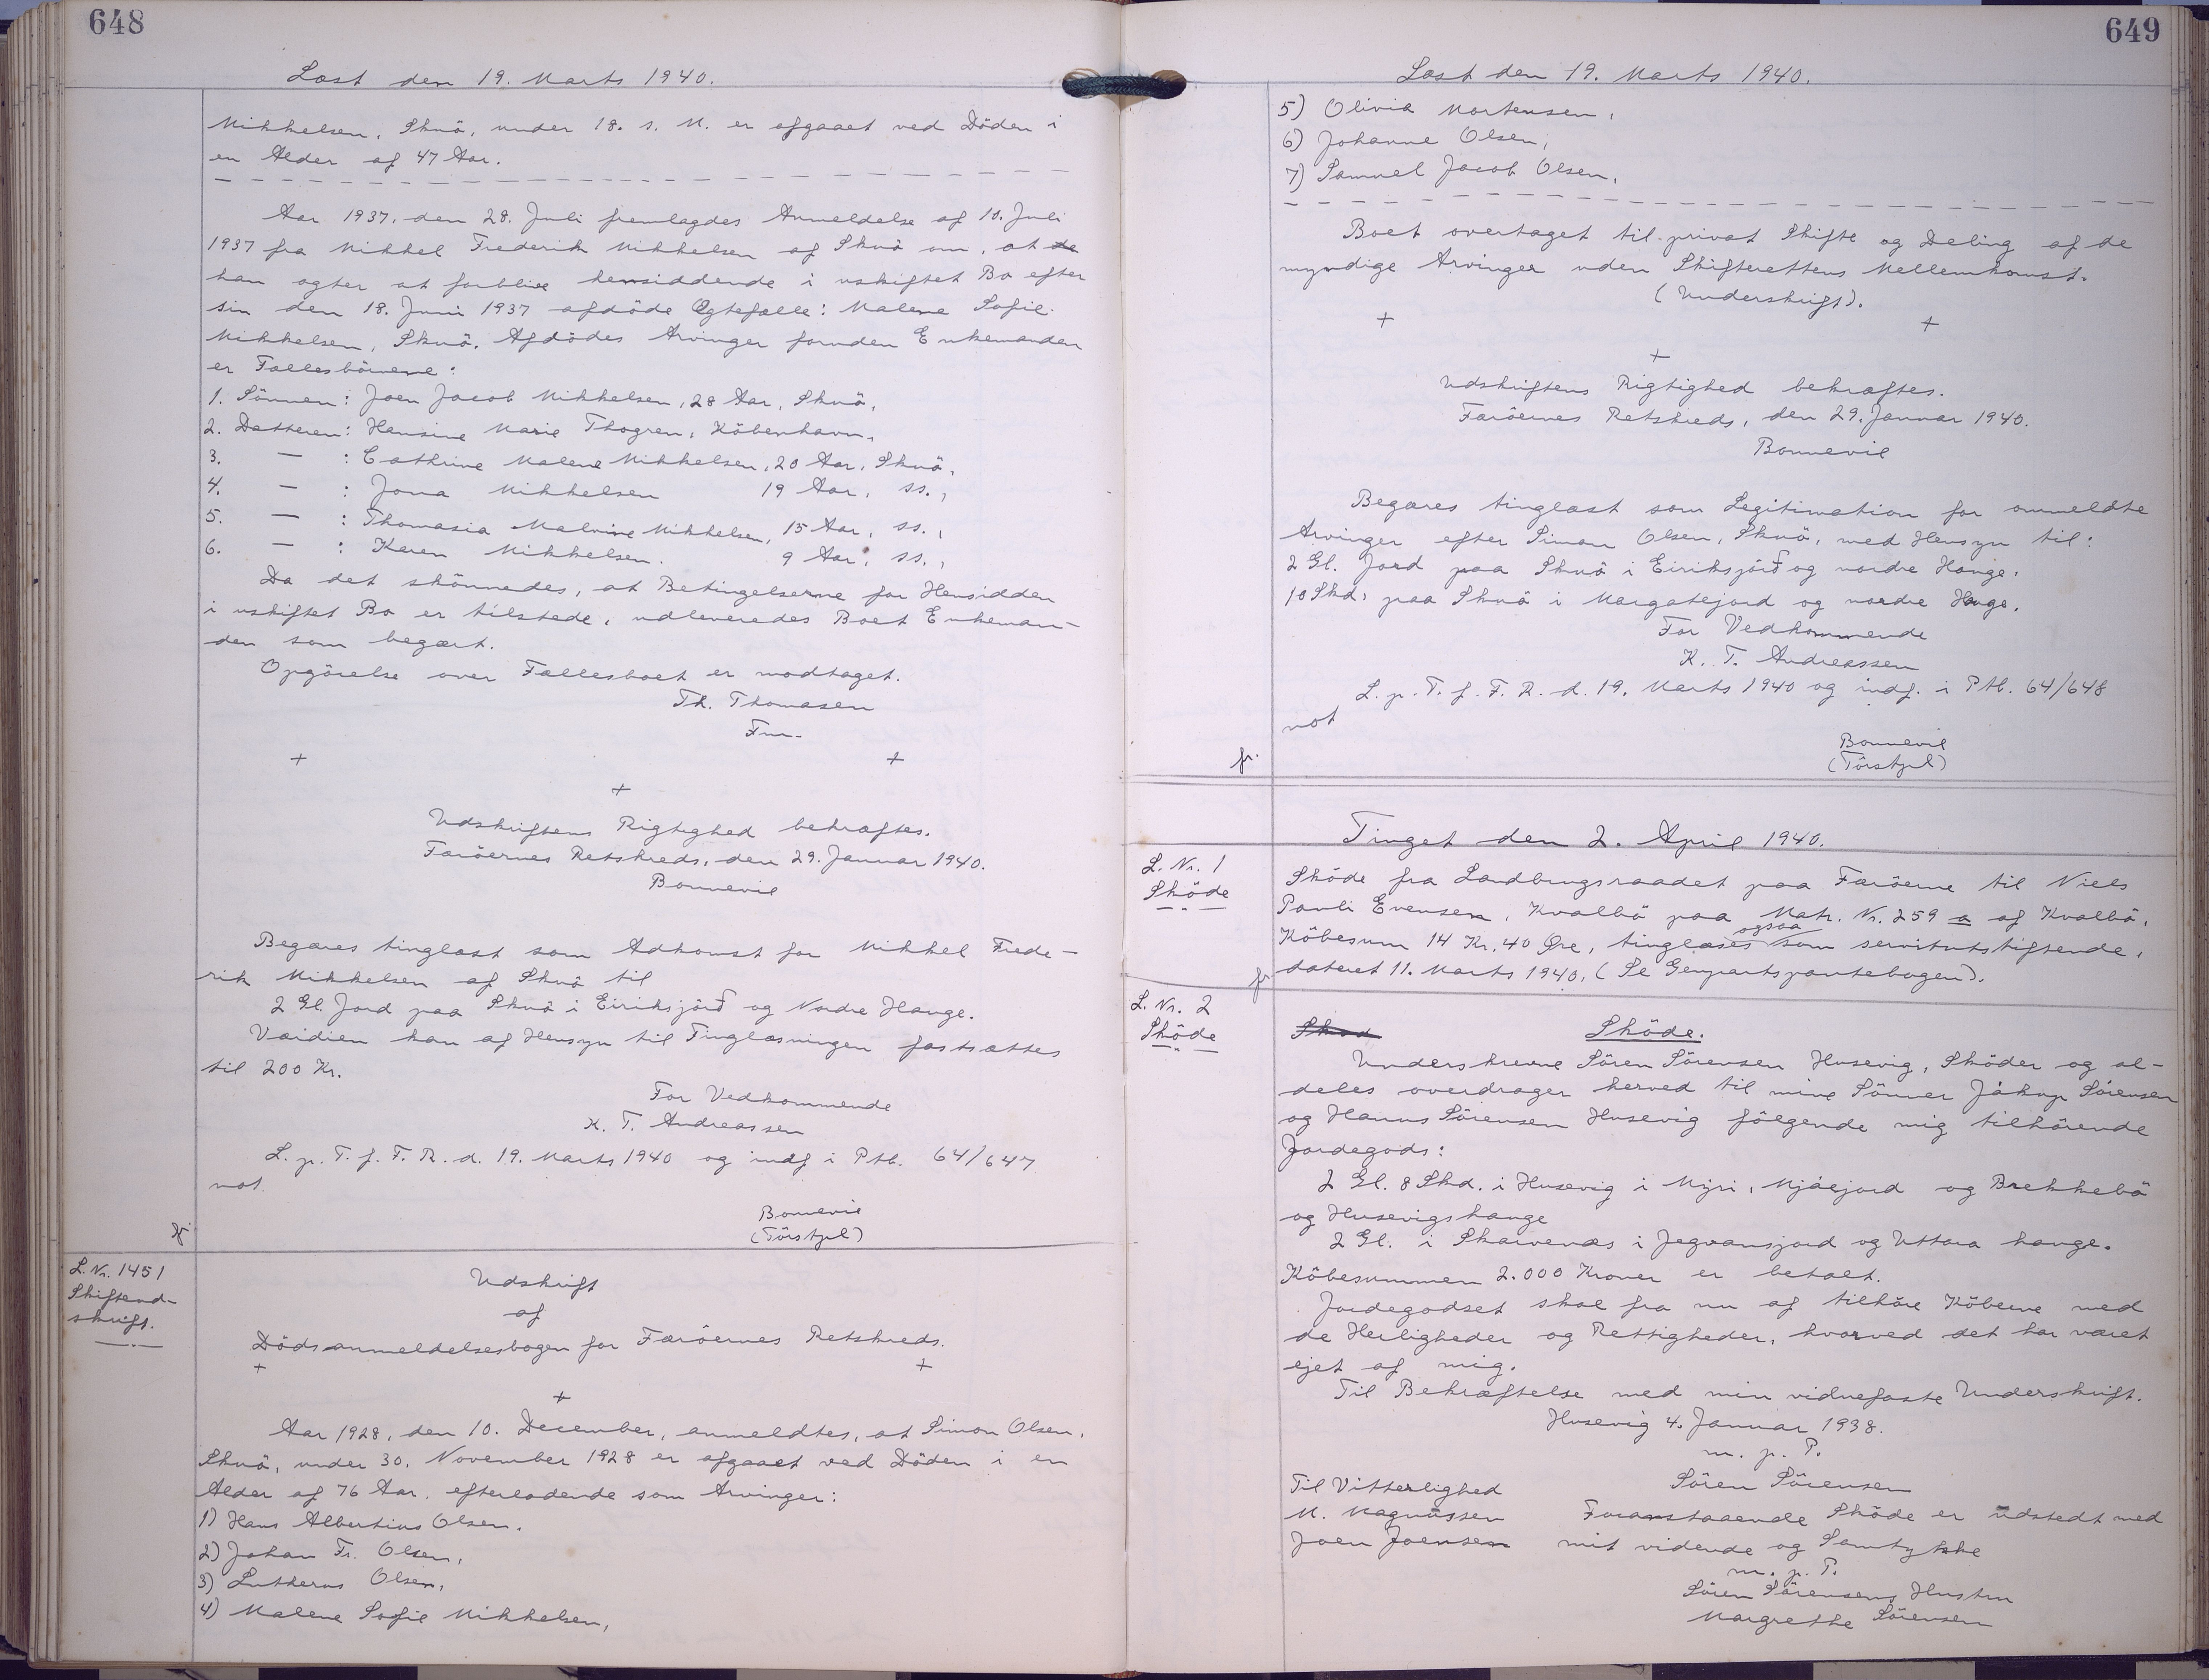 648
Læst den 19. Marts 1940.
Mikkelsen, Skuö, under 18. s. M. er afgaaet ved Döden i
en Alder af 47 Aar.
Aar 1937, den 28. Juli fremlagdes Anmeldelse af 10. Juli
1937 fra Mikkel Frederik Mikkelsen af Skuö om, at de
han agter at forblive hensiddende i uskiftet Bo efter
sin den 18. Juni 1937 afdöde Ægtefælle: Malene Sofie
Mikkelsen, Skuö. Afdödes Arvinger foruden Enkemanden
er Fællesbörnene:
1. Sönnen: Joen Jacob Mikkelsen, 28 Aar, Skuö,
2. Datteren: Hansine Marie Thogren, Köbenhavn,
3. — : Cathrine Malene Mikkelsen, 20 Aar, Skuö,
4. — : Jona Mikkelsen 19 Aar, ss.,
5. — : Thomasia Malvine Mikkelsen, 15 Aar, ss.,
6. — : Karen Mikkelsen. 9 Aar, ss.,
Da det skönnedes, at Betingelserne for Hensidden
i uskiftet Bo er tilstede, udleveredes Boet Enkeman-
den som begært.
Opgörelse over Fællesboet er modtaget.
Th. Thomasen
Fm.
+ +
+
Udskriftens Rigtighed bekræftes.
Færöernes Retskreds, den 29. Januar 1940.
Bonnevie
Begæres tinglæst som Adkomst for Mikkel Frede-
rik Mikkelsen af Skuö til
2 Gl. Jord paa Skuö i Eiriksjörð og Nordre Hauge.
Værdien kan af Hensyn til Tinglæsningen fastsættes
til 200 Kr.
For Vedkommende
K. T. Andreassen
L. p. T. f. F. R. d. 19. Marts 1940 og indf. i Ptb. 64/647
not.
Bonnevie
(Törstpl)
fr.
L. Nr. 1451
Skifteud-
skrift.
Udskrift
af
Dödsanmeldelsesbogen for Færöernes Retskreds.
+ +
+
Aar 1928, den 10. December, anmeldtes, at Simon Olsen,
Skuö, under 30. November 1928 er afgaaet ved Döden i en
Alder af 76 Aar, efterladende som Arvinger:
1) Hans Albertius Olsen.
2) Johan Fr. Olsen,
3) Lutherus Olsen,
4) Malene Sofie Mikkelsen,
649
Læst den 19. Marts 1940.
5) Olivia Mortensen,
6) Johanne Olsen,
7) Samuel Jacob Olsen,
Boet overtaget til privat Skifte og Deling af de
myndige Arvinger uden Skifterettens Mellemkomst.
(Underskrift).
+ +
+
Udskriftens Rigtighed bekræftes.
Færöernes Retskreds, den 29. Januar 1940.
Bonnevie
Begæres tinglæst som Legitimation for ommeldte
Arvinger efter Simon Olsen, Skuö, med Hensyn til:
2 Gl. Jord paa Skuö i Eiriksjörð og nordre Hauge,
10 Skd. paa Skuö i Margatejord og nordre Hauge.
For Vedkommende
K. T. Andreassen
L. p. T. f. F. R. d. 19. Marts 1940 og indf. i Ptb. 64/648
not
Bonnevie
(Törstpl)
fr.
Tinget den 2. April 1940.
L. Nr. 1
Sköde
Sköde fra Landbrugsraadet paa Færöerne til Niels
Pauli Evensen, Kvalbö paa Matr. Nr. 259 a af Kvalbö,
Köbesum 14 Kr. 40 Øre, tinglæses ogsaa som servitutstiftende,
dateret 11. Marts 1940. (Se Genpartspantebogen).
fr
L. Nr. 2
Sköde
Skød Sköde.
Underskrevne Sören Sörensen Husevig, Sköder og al-
deles overdrager herved til mine Sönner Jákup Sörensen
og Hanus Sörensen Husevig fölgende mig tilhörende
Jordegods:
2 Gl. 8 Skd. i Husevig i Mýri, Mjáejord og Brekkebö
og Husevigshauge
2 Gl. i Skarvenæs i Jegvansjord og Uttara hauge.
Köbesummen 2.000 Kroner er betalt.
Jordegodset skal fra nu af tilhöre Köberne med
de Herligheder og Rettigheder, hvorved det har været
ejet af mig.
Til Bekræftelse med min vidnefaste Underskrift.
Husevig 4. Januar 1938.
m. p. P.
Sören Sörensen
Til Vitterlighed
M. Magnussen
Joen Joensen
Foranstaaende Sköde er udstedt med
mit vidende og Samtykke
m. p. P.
Sören Sörensens Hustru
Margrethe Sörensen